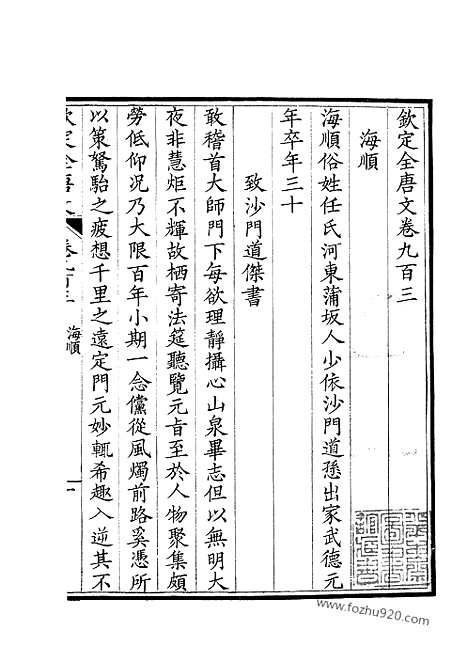 欽定全唐文卷九百三
海順
海順俗姓任氏河東蒲坂人少依沙門道愻出家武德元
年卒年三十
致沙門道傑書
敢稽首大師門下每欲理靜攝心山泉畢志但以無明大
夜非慧炬不輝故栖寄法筵聽覽元旨至於人物聚集頗
勞低仰況乃大限百年小期一念儻從風燭前路奚憑所
以策駑駘之疲想千里之遠定門元妙輒希趣入逆其不
欽定全唐文
卷九百三 海順 一
www.fozhu920.com